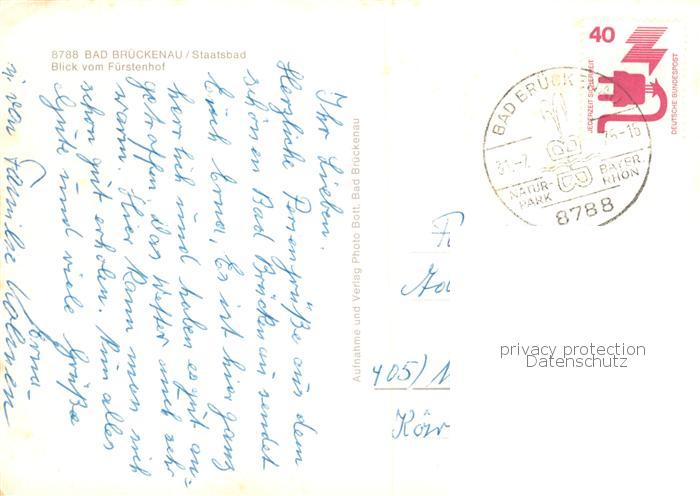 8788 BAD BRÜCKENAU / Staatsbad
Blick vom Fürstenhof
Ihr Lieben.
Herzliche Feriengrüße aus dem
schönen Bad Brückenau sendet
Euch Erna, Es ist hier ganz
herrlich und haben es gut an-
getroffen. Das Wetter auch sehr
warm. Hier kann man sich
schon gut erholen. Nun alles
Gute und viele Grüße
Erna
u. von Familie
Aufnahme und Verlag Photo Bott, Bad Brückenau
40
JEDERZEIT SICHERHEIT
DEUTSCHE BUNDESPOST
BAD BRÜCK
-15
NATUR-
PARK
BAYER.
RHÖN
8788
405)
privacy protection
Datenschutz